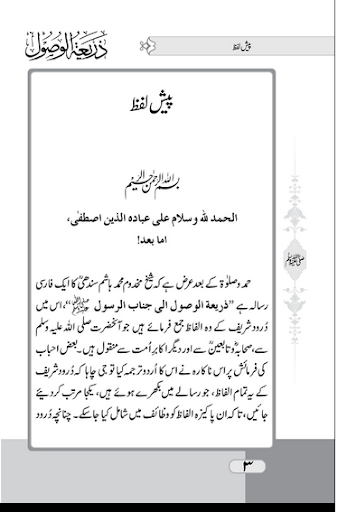 پیش لفظ
ذریعۃ الوصول
پیش لفظ
بسم اللہ الرحمن الرحیم
الحمد لله وسلام على عباده الذين اصطفٰى،
اما بعد!
حمد وصلوٰۃ کے بعد عرض ہے کہ شیخ مخدوم محمد ہاشم سندھیؒ کا ایک فارسی
رسالہ ہے ”ذریعة الوصول الى جناب الرسول ﷺ“، اس میں
دُرود شریف کے وہ الفاظ جمع فرمائے ہیں جو آنحضرت صلی اللہ علیہ وسلم
سے، صحابہؓ و تابعینؒ سے اور دیگر اکابرِ اُمت سے منقول ہیں۔ بعض احباب
کی فرمائش پر اس ناکارہ نے اس کا اُردو ترجمہ کیا تو جی چاہا کہ دُرود شریف
کے یہ تمام الفاظ، جو رسالے میں بکھرے ہوئے ہیں، یکجا مرتب کردیئے
جائیں، تاکہ ان پاکیزہ الفاظ کو وظائف میں شامل کیا جاسکے۔ چنانچہ دُرود
ﷺ
۳